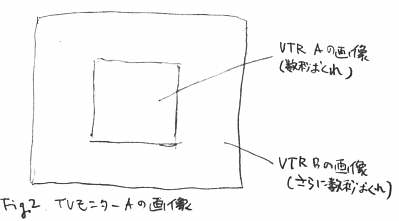 VTR Aの画像
(数秒おくれ)
VTR Bの画像
(さらに数秒おくれ)
Fig2. TVモニターAの画像